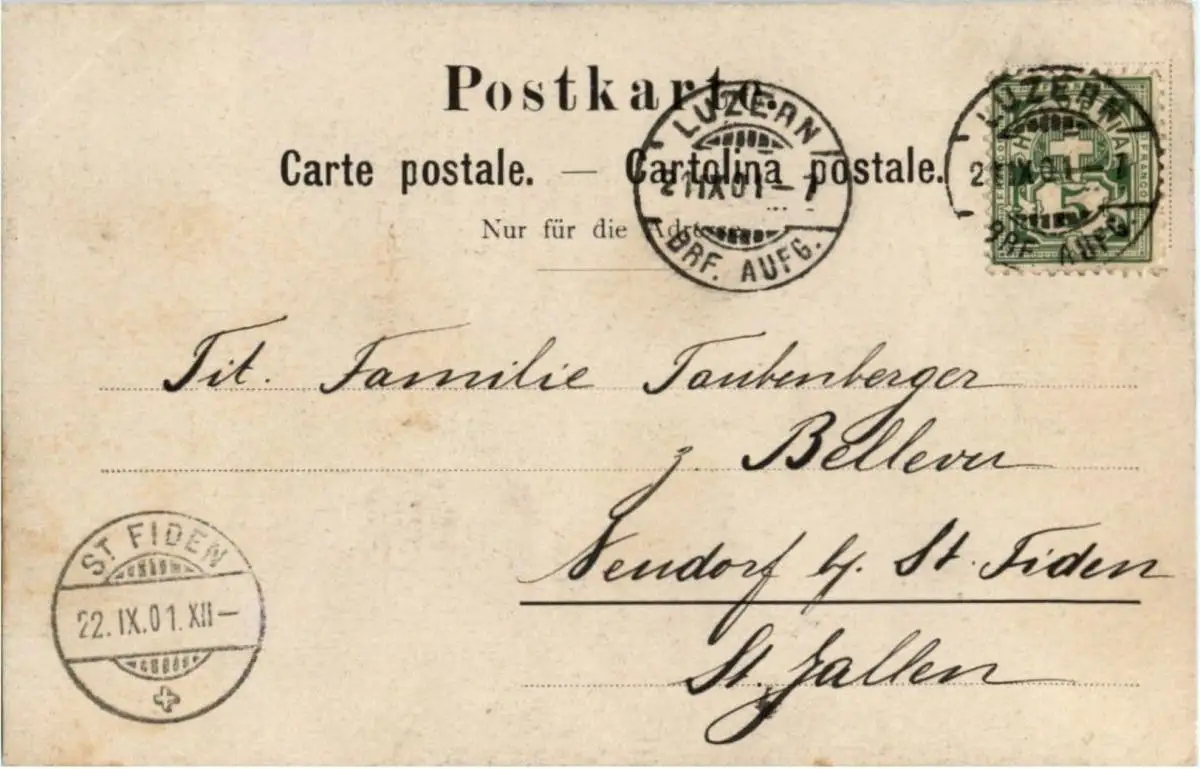 Postkarte.
Carte postale. — Cartolina postale.
Nur für die Adresse
LUZERN
21.IX.01.–7
BRF. AUFG.
LUZERN
21.IX.01.–7
BRF. AUFG.
FRANCO
5
Tit. Familie Taubenberger
z. Bellevue
Neudorf b/. St. Fiden
St. Gallen
ST FIDEN
22.IX.01.XII–